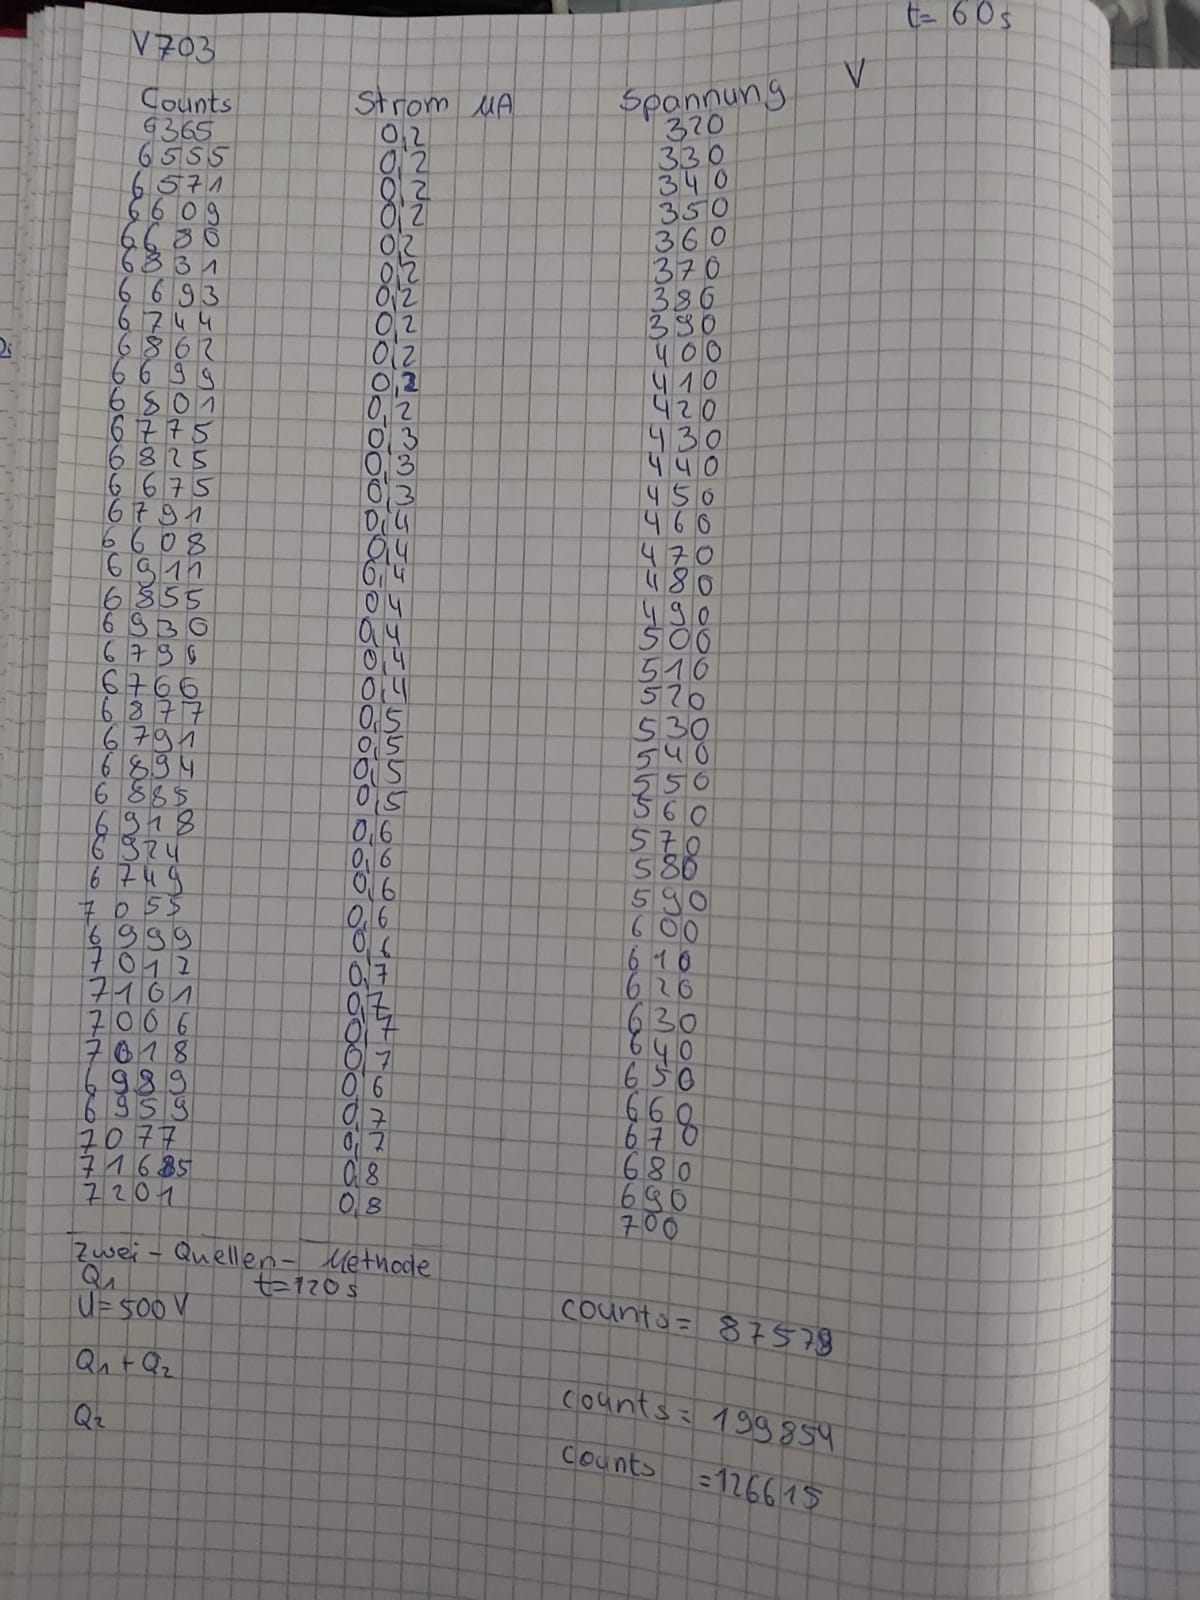 t= 60s
V703
Counts Strom µA Spannung V
9365 0,2 320
6555 0,2 330
6571 0,2 340
6609 0,2 350
6680 0,2 360
6831 0,2 370
6693 0,2 380
6744 0,2 390
6862 0,2 400
6699 0,2 410
6801 0,2 420
6775 0,3 430
6825 0,3 440
6675 0,3 450
6791 0,4 460
6608 0,4 470
6911 0,4 480
6855 0,4 490
6930 0,4 500
0,4 510
6766 0,4 520
6877 0,5 530
6791 0,5 540
6894 0,5 550
6885 0,5 560
6918 0,6 570
6924 0,6 580
6749 0,6 590
7055 0,6 600
6999 0,6 610
7012 0,7 620
7101 0,7 630
7006 0,7 640
7018 0,7 650
6989 0,6 660
6959 0,7 670
7077 0,7 680
0,8 690
7201 0,8 700
Zwei-Quellen-Methode
Q1 t=120s
U=500V counts= 87579
Q1 + Q2
counts= 199854
Q2
counts =126615